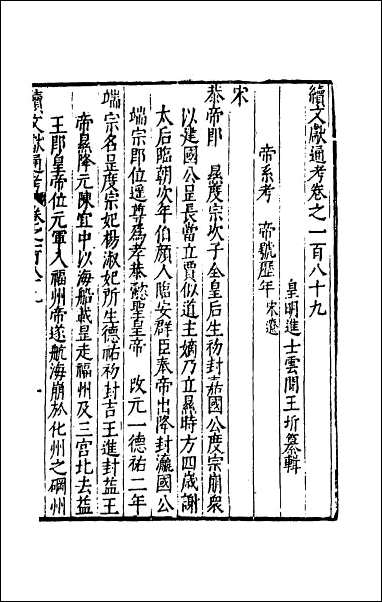 續文獻通考卷之一百八十九
皇明進士雲間王圻纂輯
帝系考　帝號歷年　宋遼
宋
恭帝即㬎度宗次子全皇后生初封嘉國公度宗崩衆
以建國公昰長當立賈似道主嫡乃立㬎時方四歲謝
太后臨朝次年伯顏入臨安群臣奉帝出降封瀛國公
端宗即位遥尊為孝恭懿聖皇帝　改元一德祐二年
端宗名昰度宗妃楊淑妃所生德祐初封吉王進封益王
帝㬎降元陳宜中以海船載昰走福州及三宮北去益
王即皇帝位元軍入福州帝遂航海崩於化州之碙州
續文獻通考　卷之一百八十九　一